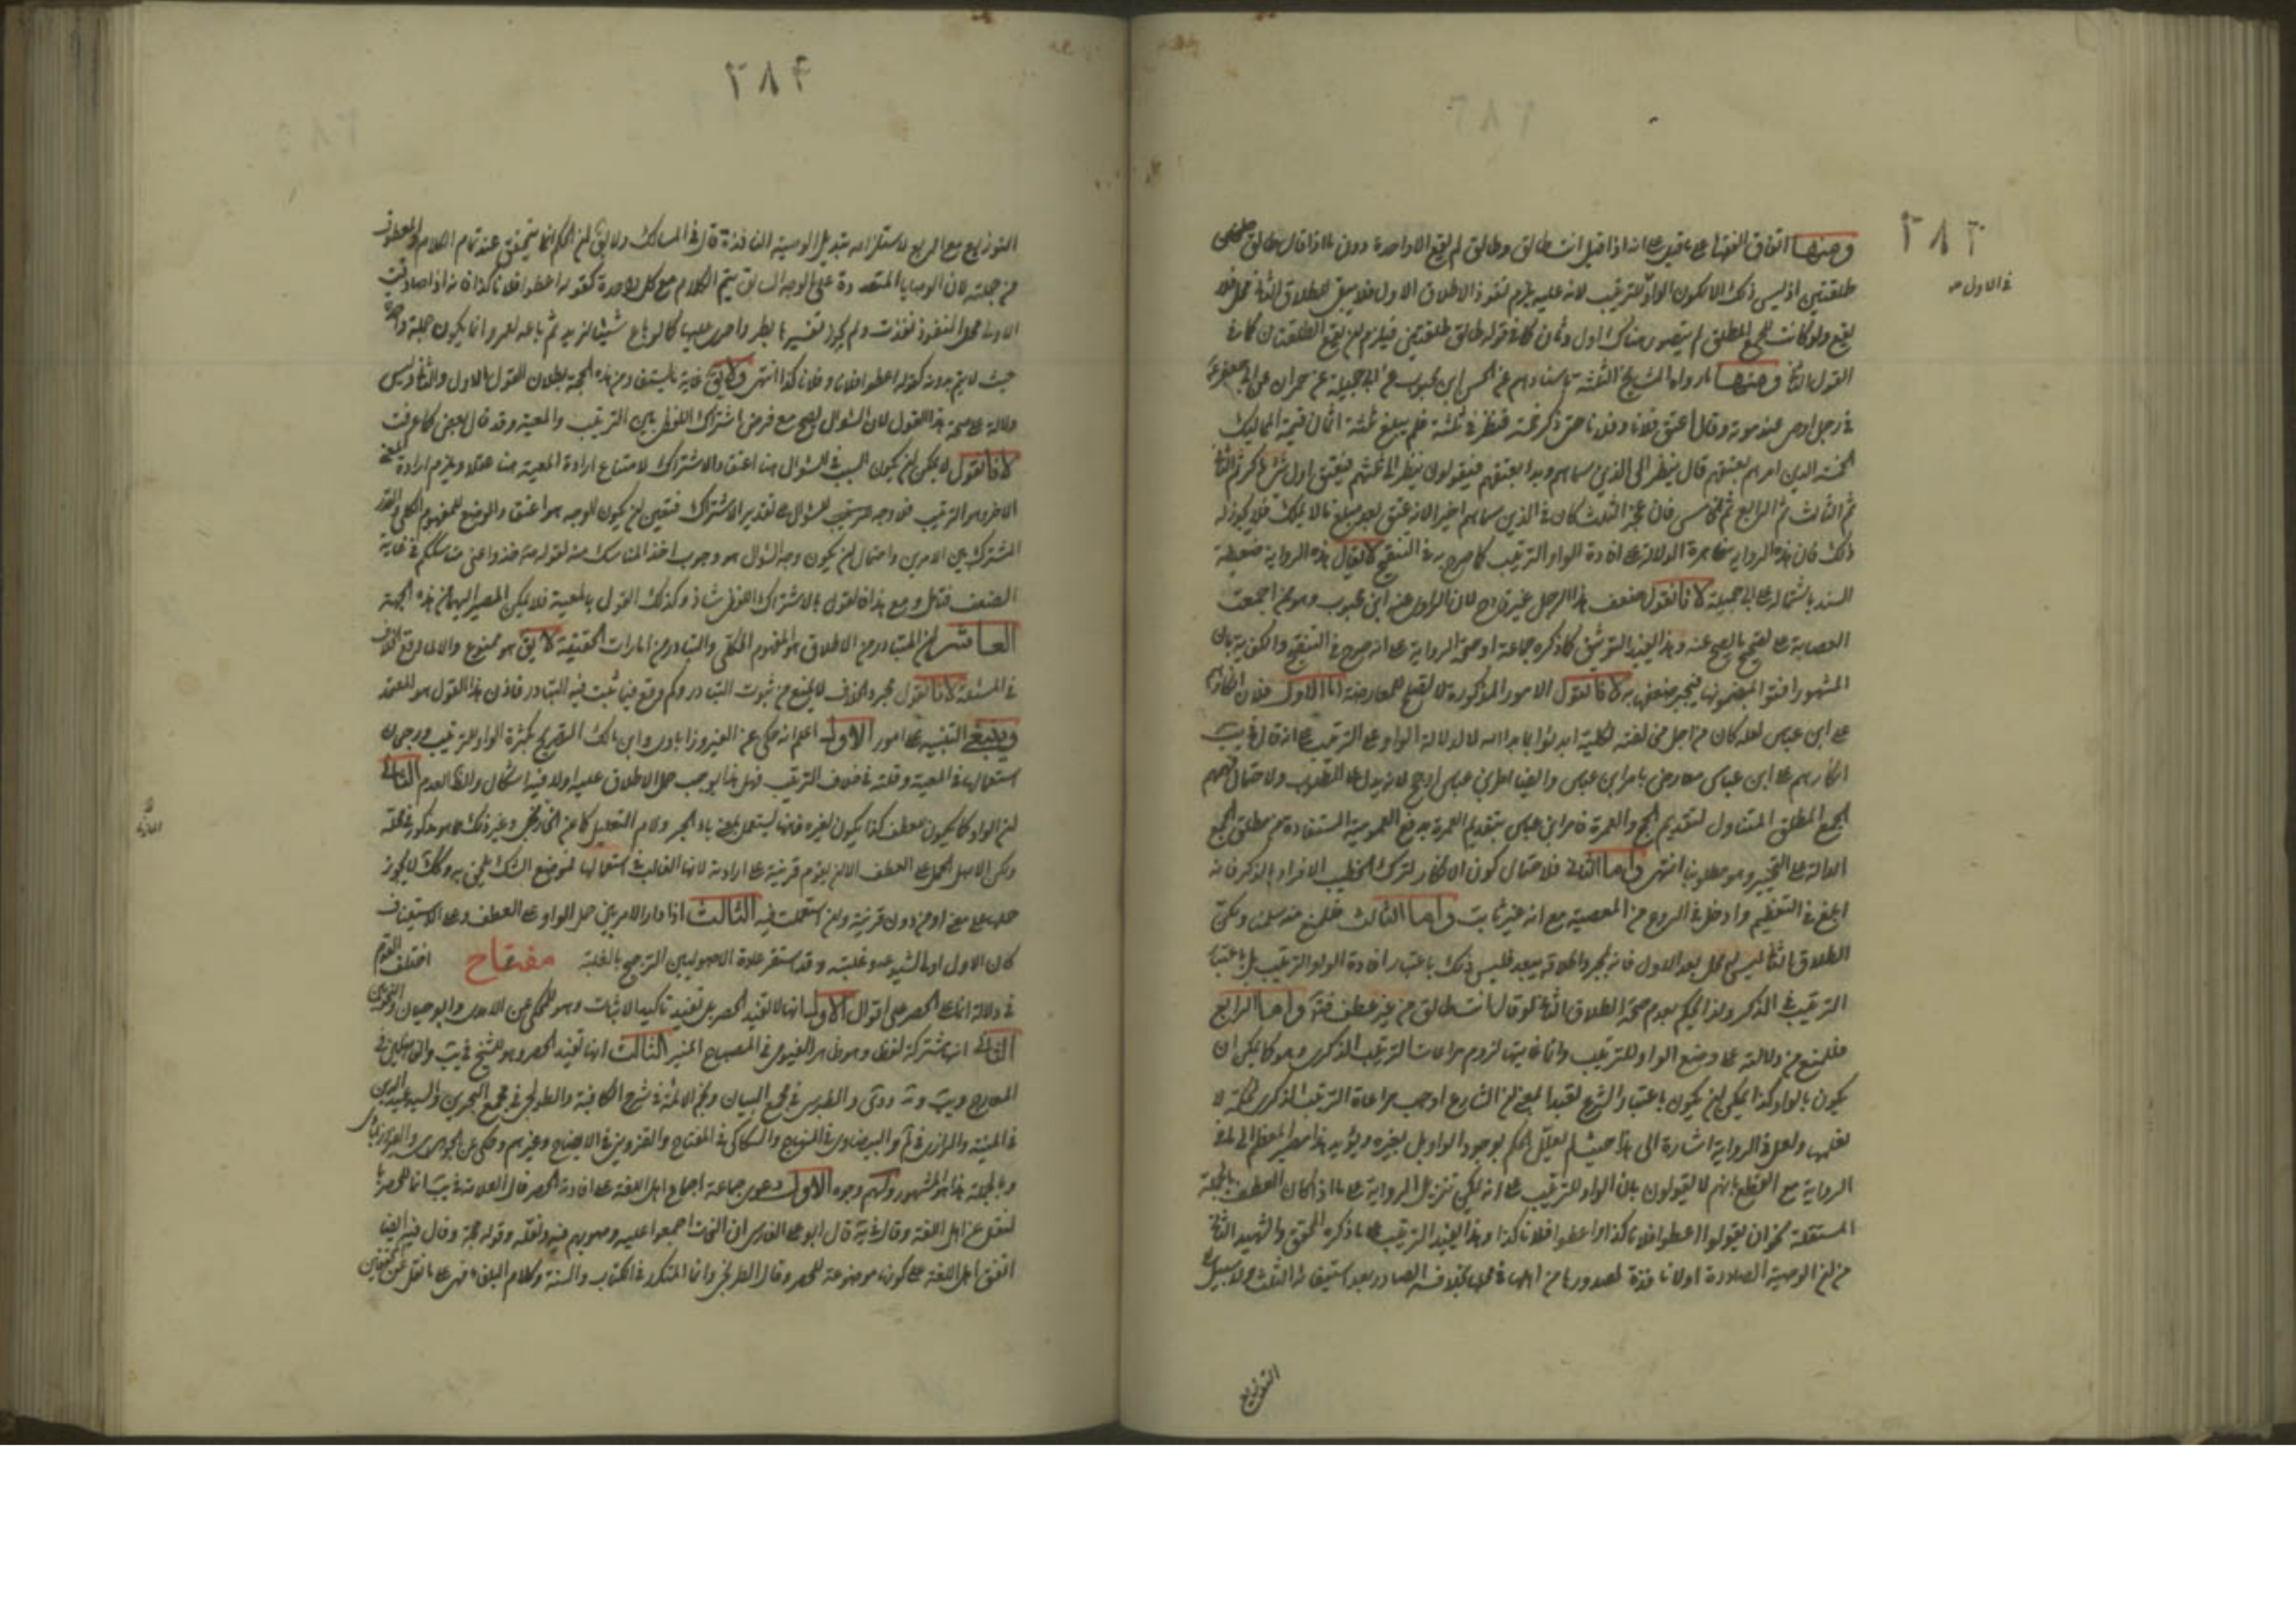 ٢٨٣
في الاول صه
ومنها اتفاق الفقهاء على ما قيل على انه اذا قيل انت طالق وطالق لم يقع الا واحدة دون ما اذا قال طالق
طلقتين اذ ليس ذلك الا لكون الواو للترتيب لانه عليه يلزم نفوذ الاطلاق الاول فلا يبقى للطلاق الثاني محل فلا
يقع ولو كانت للجمع المطلق لم يتصور هناك اول وثان كما في قوله طالق طلقتين فيلزم ان يقع الطلقتان كما في
القول الثاني ومنها ما رواه المشايخ الثلثة باسنادهم عن الحسن ابن محبوب عن ابي جميلة عن حمران عن ابي جعفر ع
في رجل اوصى عند موته وقال اعتق فلانا وفلانا حتى ذكر خمسة فنظر في ثلثه فلم يبلغ ثلثه اثمان قيمة المماليك
الخمسة الذين امرهم بعتقهم قال ينظر الى الذي سماهم وبدا بعتقهم فيقومون وينظر الى ثلثه فيعتق اول شيء ذكر ثم الثاني
ثم الثالث ثم الرابع ثم الخامس فان عجز الثلث كان في الذين سماهم اخيرا لانه عتق بعد مبلغ ما لا يملك فلا يجوز له
ذلك فان هذه الرواية ظاهرة الدلالة على افادة الواو الترتيب كما صرح به في التنقيح لا يقال هذه الرواية ضعيفة
السند باشتماله على ابي جميلة لانا نقول ضعف هذا الرجل غير قادح لان الراوي عنه ابن محبوب وهو ممن اجمعت
العصابة على تصحيح ما يصح عنه وهذا يفيد التوثيق كما ذكره جماعة او صحة الرواية على انه صرح في التنقيح والكفوية بان
المشهور افتوا بمضمونها فينجبر ضعفها به لانا نقول الامور المذكورة لا تصلح للمعارضة اما الاول فلان انكارهم
على ابن عباس لعله كان من اجل مخالفته لكلية ابدئوا بما بدا الله لا لدلالة الواو على الترتيب على انه قال في يب
انكارهم على ابن عباس معارض بامر ابن عباس وايضا امر ابن عباس ارجح لانه يدل على المطلوب ولاحتمال فهمهم
الجمع المطلق المتناول لتقديم الحج والعمرة فامر ابن عباس بتقديم العمرة يدفع العمومية المستفادة من مطلق الجمع
الدالة على التخيير وهو مطلوبنا انتهى واما الثاني فلاحتمال كون الانكار لترك الخطيب الافراد بالذكر فانه
ابلغ في التعظيم وادخل في الردع من المعصية مع انه غير ثابت واما الثالث فللمنع منه سلمنا ولكن
الطلاق الثاني ليس له محل بعد الاول فانه بمجرد اطلاقه يبعد فليس ذلك باعتبار افادة الواو الترتيب بل باعتبار
الترتيب في الذكر ولذا يحكم بعدم صحة الطلاق الثاني لو قال انت طالق من غير عطف فتأمل واما الرابع
فللمنع من دلالته على وضع الواو للترتيب وانما غايتها لزوم مراعات الترتيب الذكرى وهو كما يمكن ان
يكون بالواو كذا يمكن ان يكون باعتبار الشرع تعبدا بمعنى ان الشارع اوجب مراعاة الترتيب الذكرى لحكمة لا
نعلمها ولعل في الرواية اشارة الى هذا حيث لم يعلل الحكم بوجود الواو بل بغيره ويؤيد هذا مصير المعظم الى ما في
الرواية مع القطع بانهم لا يقولون بان الواو للترتيب على انه يمكن تنزيل الرواية على ما اذا كان العطف بالجملة
المستقلة نحو ان يقولوا اعطوا فلانا كذا واعطوا فلانا كذا وهذا يفيد الترتيب على ما ذكره المحقق والشهيد الثاني
من ان الوصية الصادرة اولا نافذة لصدورها من اهلها في محلها بخلاف الصادر بعد استيفاء الثلث ولا سبيل الى
التوزيع
٢٨٤
التوزيع مع الريع لاستلزامه تبديل الوصية النافذة قال في المسالك ولا يق ان الحكم انما يتحقق عند تمام الكلام والمعطوف
من جملته لان الوصايا المتعددة على الوجه السابق يتم الكلام مع كل واحدة كقوله اعطوا فلانا كذا فانه اذا صادفت
الاولى محل النفوذ نفذت ولم يجز تغييرها بطرو اخرى عليها كما لو باع شيئا لزيد ثم باعه لعمرو انما يكون جملة واحدة
حيث لا يتم بدونه كقوله اعطوا فلانا وفلانا كذا انتهى ولا يق غاية ما يستفاد من هذه الحجة بطلان القول بالاول والثاني وليس
دلالة على صحة هذا القول لان السؤال يصح مع فرض اشتراك اللفظ بين الترتيب والمعية وقد قال به بعض كما عرفت
لانا نقول لا يمكن ان يكون السبب في السؤال هنا اعتقاد الاشتراك لامتناع ارادة المعية هنا عقلا ويلزم ارادة المعنى
الاخر وهو الترتيب فلا وجه للسؤال على تقدير الاشتراك فتعين ان يكون الوجه هو اعتقاد الوضع للمفهوم الكلي والقدر
المشترك بين الامرين واحتمال ان يكون وجه السؤال هو وجوب اخذ المناسك منه لقوله ص خذوا عني مناسككم في غاية
الضعف فتأمل ومع هذا فالقول بالاشتراك اللفظي شاذ وكذلك القول بالمعية فلا يمكن المصير اليهما من هذه الجهة
العاشر ان المتبادر من الاطلاق هو المفهوم الكلي والتبادر من امارات الحقيقة لا يق هو ممنوع والا لما وقع الخلاف
في المسئلة لانا نقول مجرد الخلاف لا يمنع من ثبوت التبادر وكم وقع فيما ثبت فيه التبادر فاذن هذا القول هو المعتمد
وينبغي التنبيه على امور الاول اعلم انه حكى عن الفيروزابادي وابن مالك التصريح بكثرة الواو للترتيب ورجحان
استعمالها في المعية وقلته في خلاف الترتيب فهل هذا يوجب حمل الاطلاق عليه اولا فيه اشكال والظ العدم الثاني
ان الواو كما يكون للعطف كذا يكون لغيره فانها يستعمل بمعنى باء الجر ولام التعليل كما عن الخارزنجي وغير ذلك مما هو مذكور في محله
ولكن الاصل الحمل على العطف الا ان يقوم قرينة على ارادته لانها الغالب في استعمالها فموضع الشك يلحق به وكك لا يجوز
حملها على معنى او من دون قرينة وان استعملت فيه الثالث اذا دار الامر بين حمل الواو على العطف وعلى الاستيناف
كان الاول اولى لشيوعه وغلبته وقد استقر عادة الاصوليين الترجيح بالغلبة مفتاح اختلف القوم
في دلالة انما على الحصر على اقوال الاول انها لا تفيد الحصر بل تفيد تاكيد الاثبات وهو المحكى عن الامدى وابو حيان والنحويين
الثاني انها مشتركة لفظا وهو ظاهر الفيومى في المصباح المنير الثالث انها تفيد الحصر وهو للشيخ في يب والفاضلين في
المعارج ويب و ية و دى والطبرسى في مجمع البيان ونجم الائمة في شرح الكافية والطريحى في مجمع البحرين والسيد عميد الدين
في المنية والرازى في لم والبيضاوى في المنهاج والسكاكى في المفتاح والقزوينى في الايضاح وغيرهم وحكى عن الجوهرى والفيروزابادى
وبالجملة هذا هو المشهور ولهم وجوه الاول دعوى جماعة اجماع اهل اللغة على افادته الحصر قال العلامة في يب انما للحصر
لنقل عن اهل اللغة وقال في ية قال ابو على الفارسى ان النحاة اجمعوا عليه وصوبهم فيه ونقله وقوله حجة وقال فيه ايضا
اتفق اهل اللغة على كونها موضوعة للحصر وقال الطريحى وانما المتكرر في الكتاب والسنة وكلام البلغاء فهى على ما نقل عن المحققين